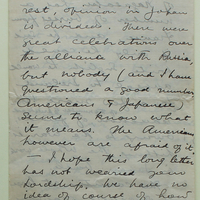 rest, opinion in Japan
is divided. There were
great celebrations over
the alliance with Russia
but nobody (and I have
questioned a good number
Americans & Japanese)
seems to know what
it means. The Americans
however are afraid of it.
— I hope this long letter
has not wearied your
hardship. We have no
idea of course of how